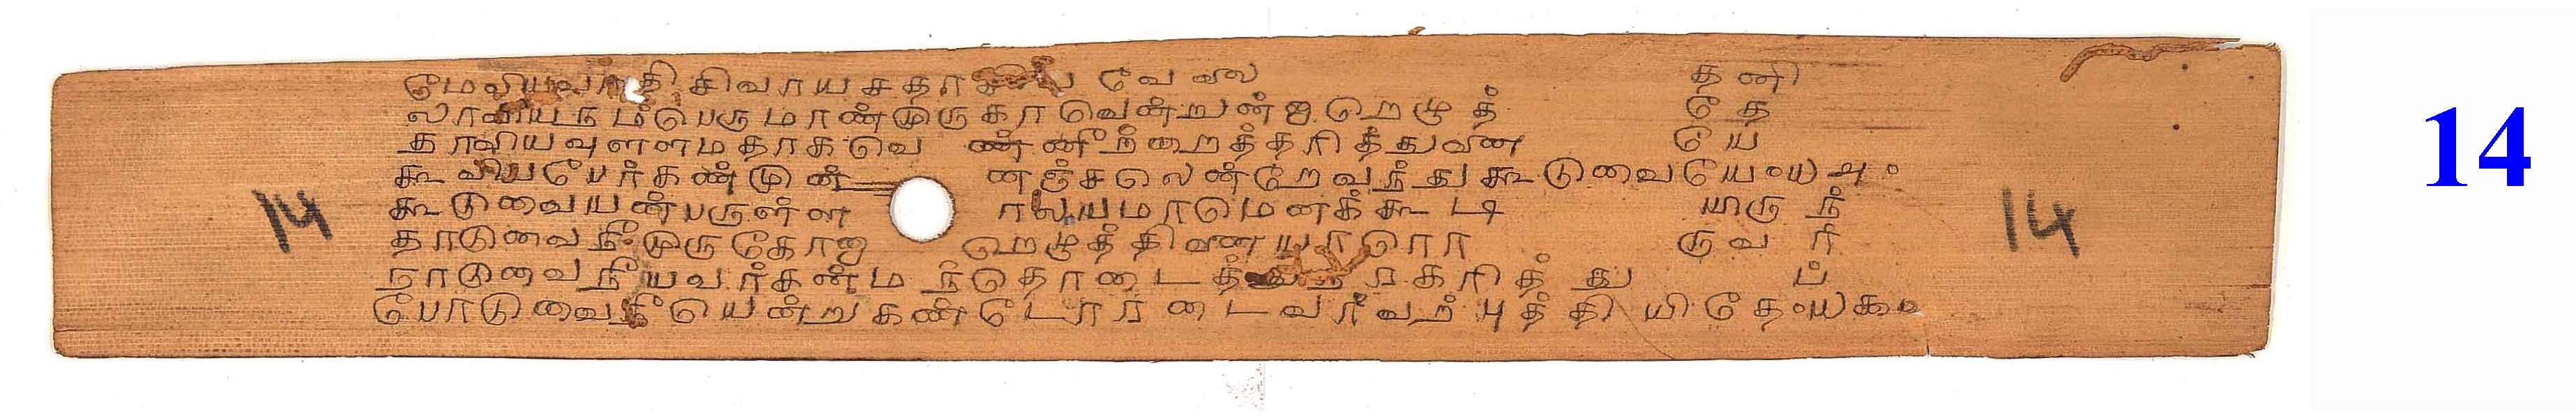 மேவியவாதி சிவாயசதாசிவ வேவல தனி
லாவியநமபெருமாண்முருகாவென்றுன்னஐ றெழுத் தே
தாவியவுளளமதாகவெ ண்ணீற்றைத்தரித்துவண யே
கூவியபேர்கண்முன் னஞ்சலென்றேவந்துகூடுவையே ௰௮
கூடுவையன்பருள்ள ாலயமாமெனக்கூடி யிரு ந்
தாடுவைநீ முருகோனா றெழுத்திவண யாரொ ருவ ர்
நாடுவைநீயவர்கன்ம ந்தொடைத்து கரித் து ப்
போடுவைநீயென்றுகண்டோர டைவர்வற்புத்தியிதே ௰௯
14
14
14